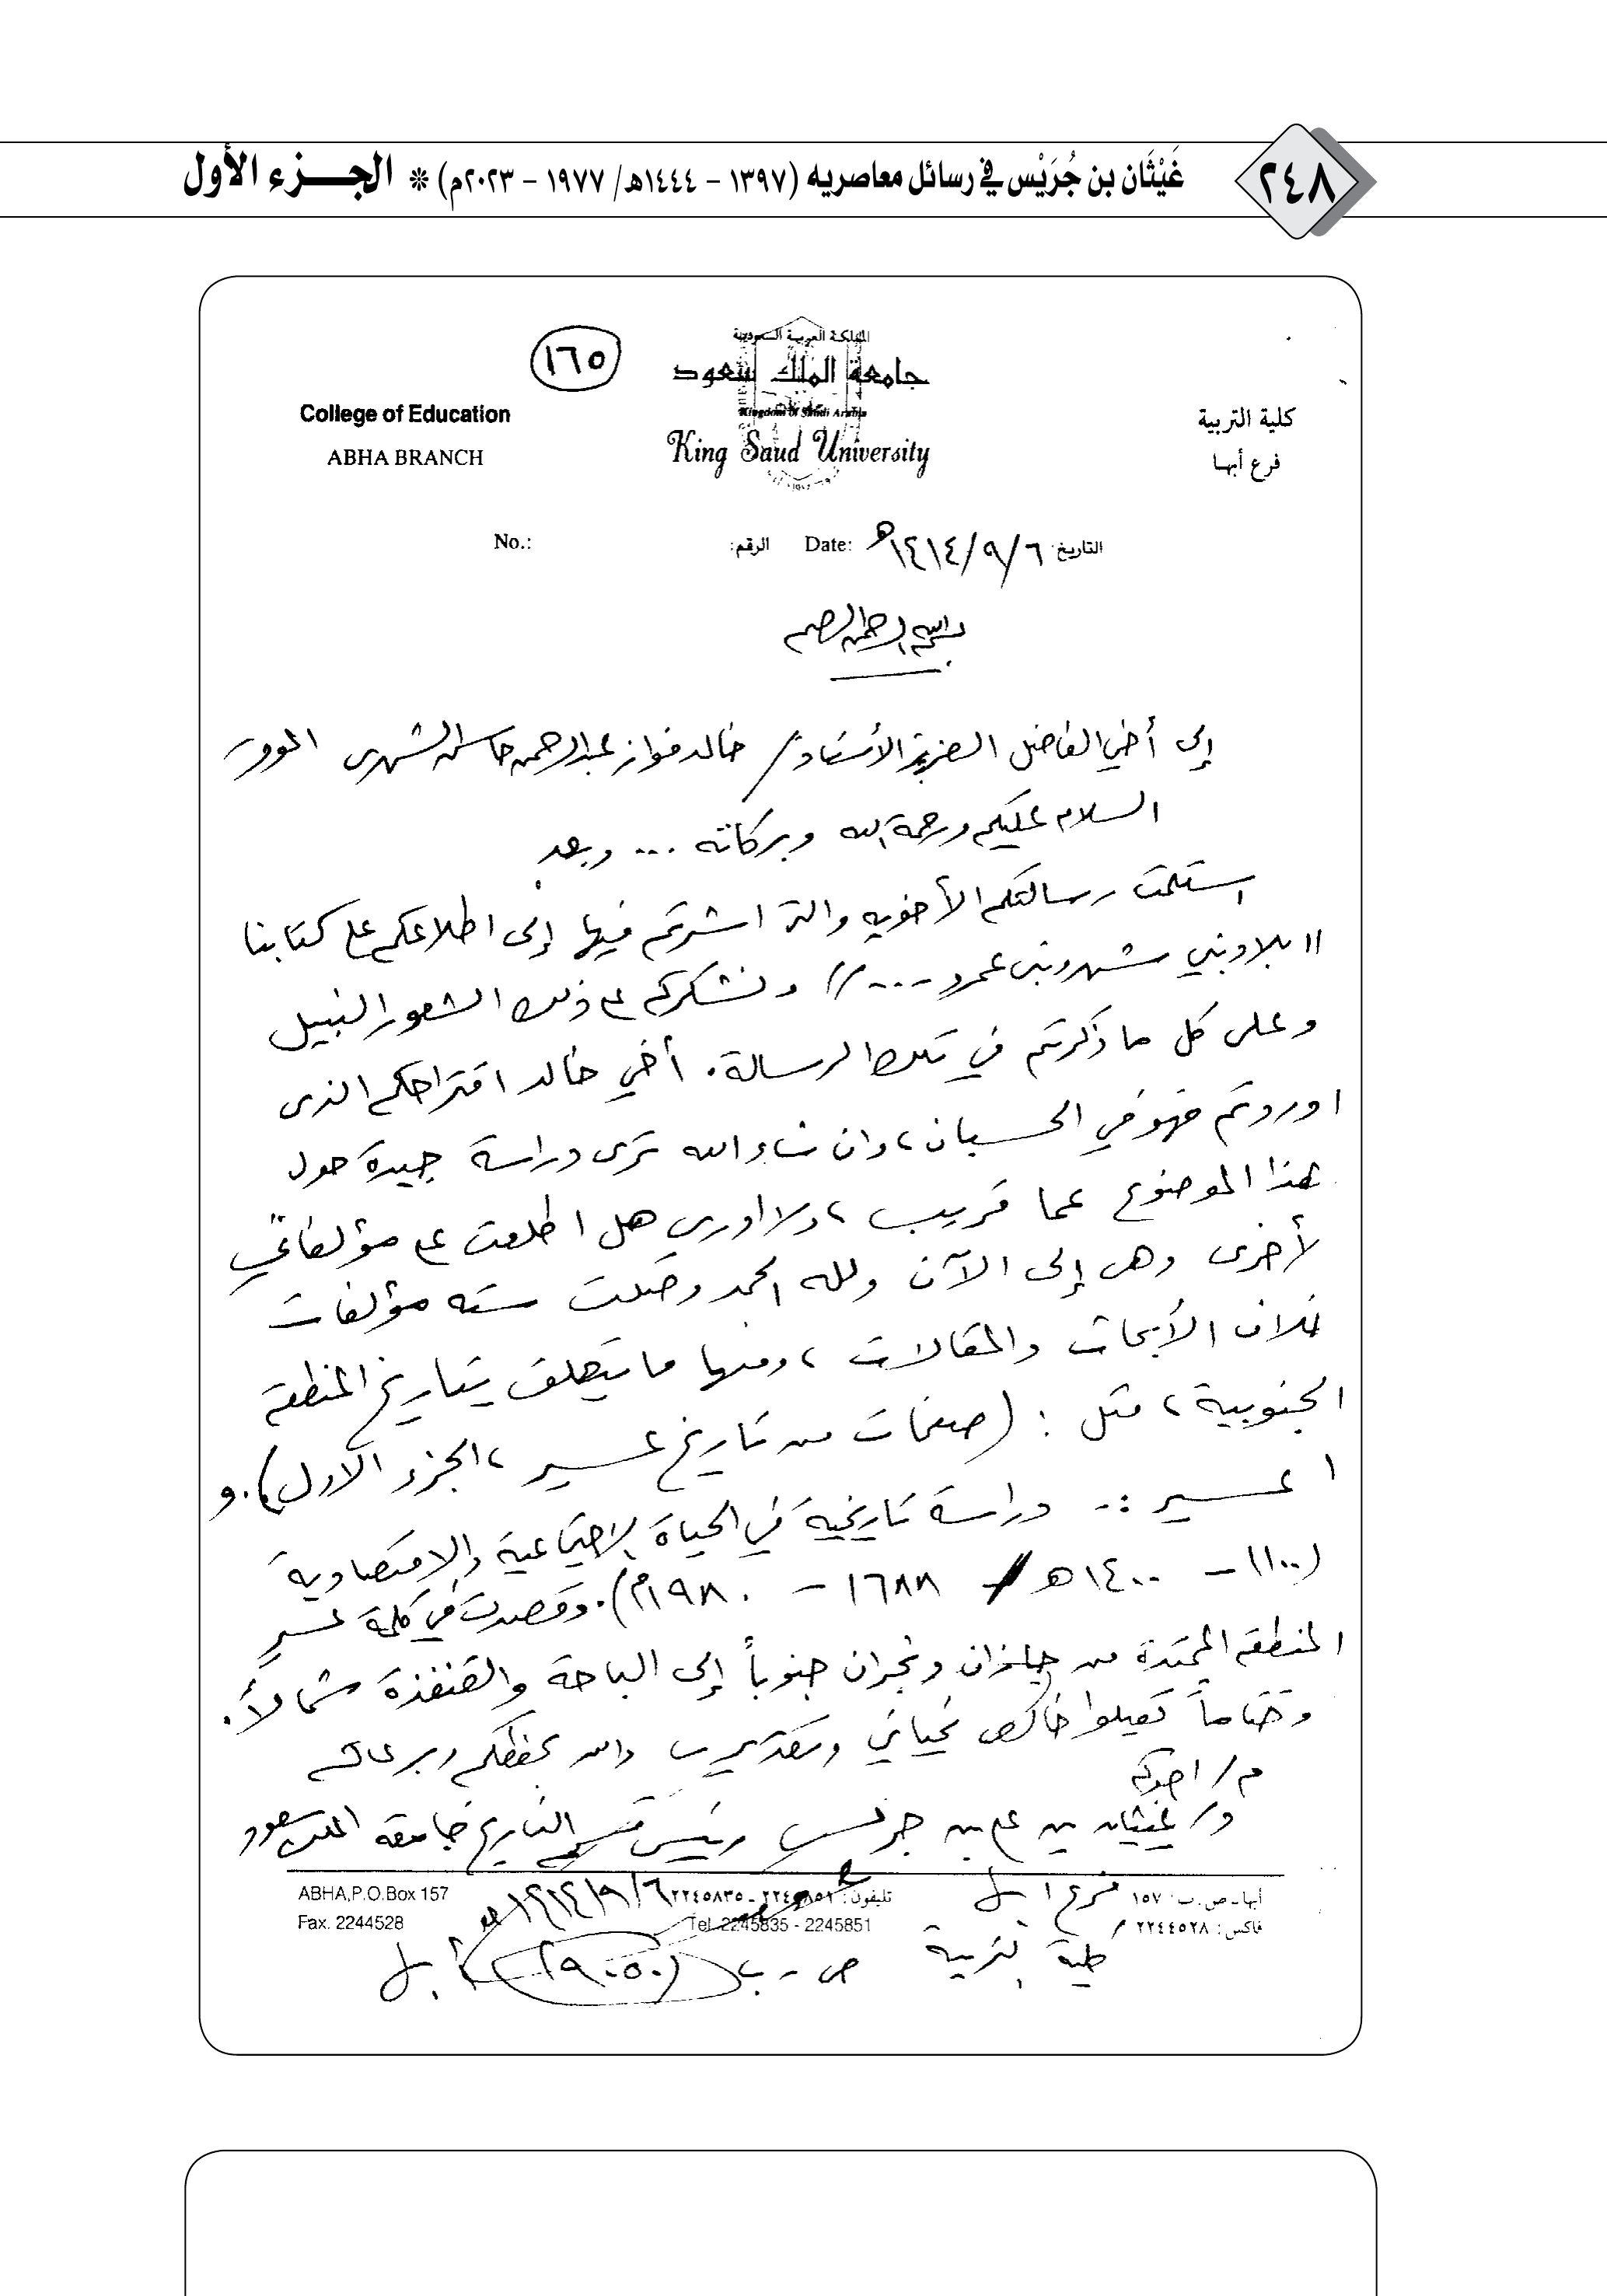 ٢٤٨
غَيْثَان بن جُرَيْس في رسائل معاصريه (١٣٩٧ - ١٤٤٤هـ/ ١٩٧٧ - ٢٠٢٣م) * الجـــزء الأول
١٦٥
المملكة العربية السعودية
جامعة الملك سعود
Kingdom of Saudi Arabia
King Saud University
College of Education
ABHA BRANCH
كلية التربية
فرع أبهـا
التاريخ: ١٤١٤/٩/٦هـ Date: الرقم: No.:
بسم الله الرحمن الرحيم
إلى أخي الفاضل العزيز الأستاذ/ خالد فواز عبدالرحمن الشهري الموقر
السلام عليكم ورحمة الله وبركاته ... وبعد
استلمت رسالتكم الأخويه والتي اشرتم فيها إلى اطلاعكم على كتابنا
"بلاد بني شهر وبني عمرو ...." ونشكركم على ذلك الشعور النبيل
وعلى كل ما ذكرتم في تلك الرسالة. أخي خالد اقتراحكم الذي
اوردتم فهو في الحسبان، وان شاء الله ترى دراسة جيدة حول
هذا الموضوع عما قريب، ولا ادري هل اطلعت على مؤلفاتي
لأخرى وهي إلى الآن ولله الحمد وصلت سته مؤلفات
خلاف الأبحاث والمقالات، ومنها ما يتعلق بتاريخ المنطقه
الجنوبية، مثل : (صفحات من تاريخ عسير، الجزء الاول). و
(عسير :- دراسة تاريخية في الحياة الاجتماعية والاقتصادية
(١١٠٠ - ١٤٠٠هـ / ١٦٨٨ - ١٩٨٠م). وقصدت في كلمة عسير
المنطقه الممتدة من جازان ونجران جنوباً إلى الباحة والقنفذة شمالاً.
وختاماً تقبلوا خالص تحياتي وتقديري والله يحفظكم ويرعاكم
م/ اخوكم
د/ غيثان بن علي بن جريس رئيس قسم التاريخ جامعة الملك سعود
أبهـا ـ ص. ب: ١٥٧ فرع ابها تليفون: ٢٢٤٥٨٥١ - ٢٢٤٥٨٣٥ ١٤١٤/٩/٦هـ ABHA,P.O.Box 157
فاكس: ٢٢٤٤٥٢٨ Tel. 2245835 - 2245851 Fax. 2244528
كلية التربية ص.ب (٩٠٥٠) أبها